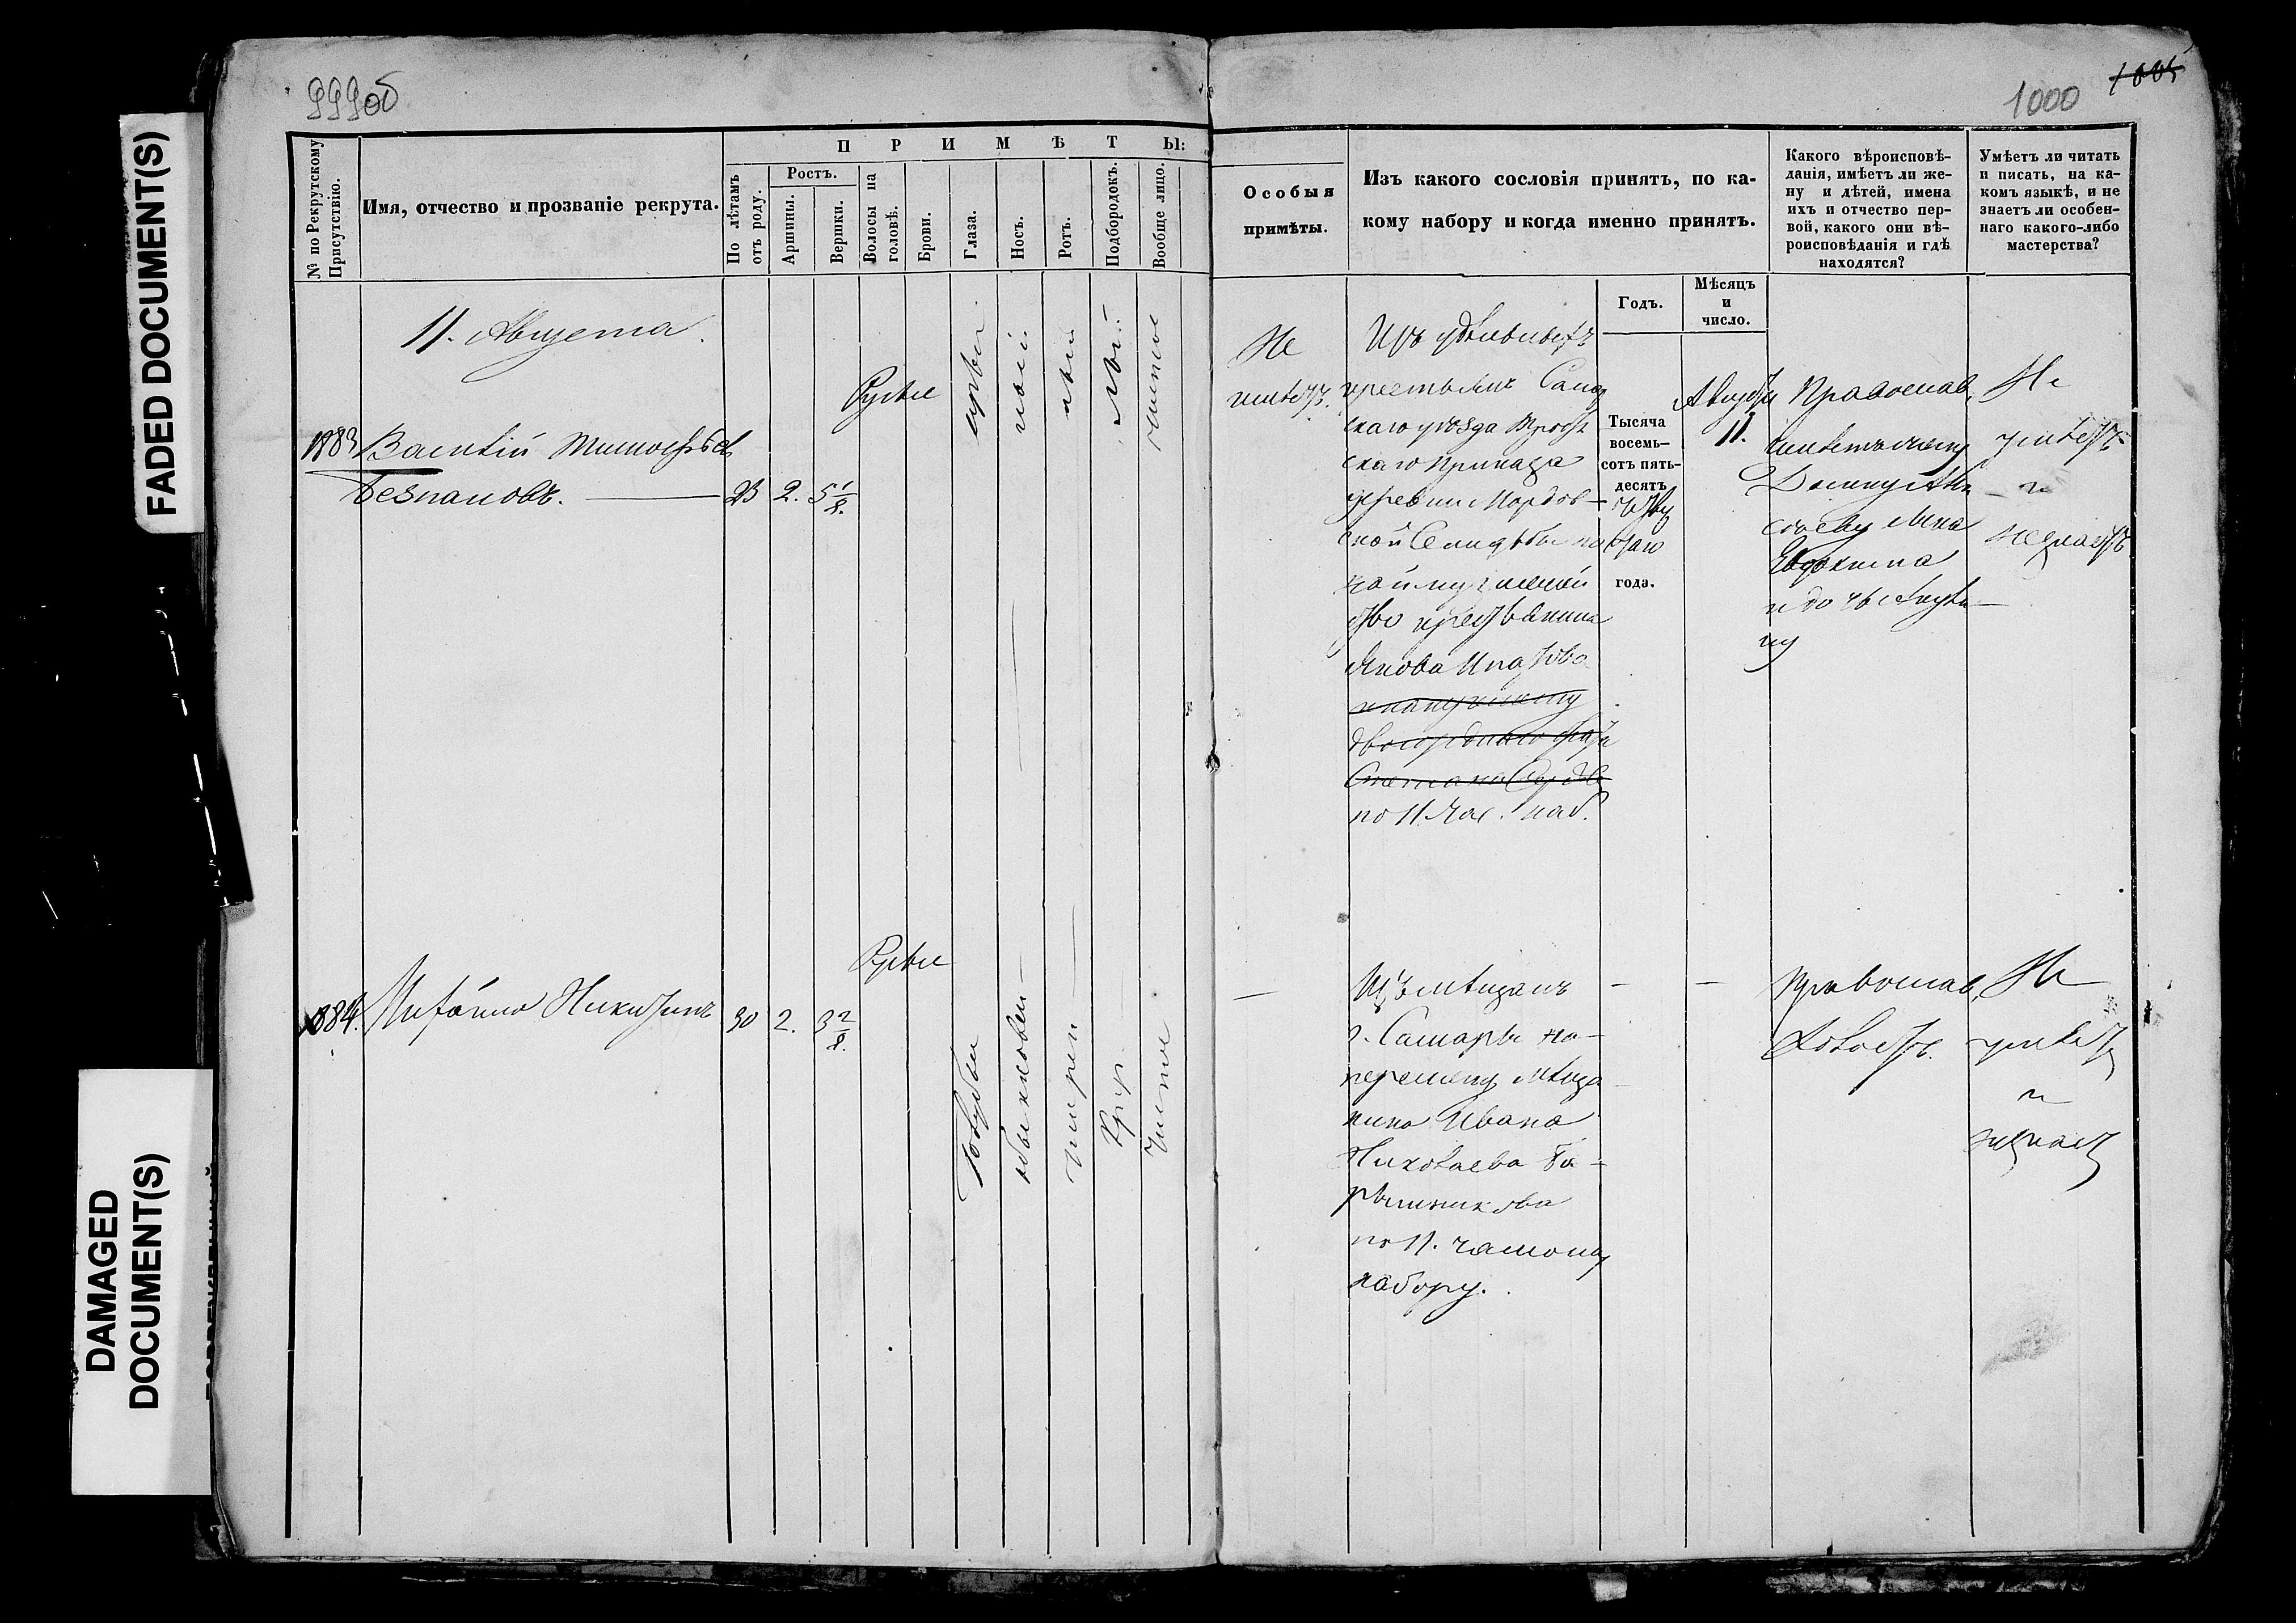 999об
1000
1005
FADED DOCUMENT(S)
DAMAGED
DOCUMENT(S)
№ по Рекрутскому
Присутствію.
Имя, отчество и прозваніе рекрута.
ПРИМѢТЫ:
По лѣтамъ
отъ роду.
Ростъ.
Аршины.
Вершки.
Волосы на
головѣ.
Брови.
Глаза.
Носъ.
Ротъ.
Подбородокъ.
Вообще лицо.
Особыя
примѣты.
Изъ какого сословія принятъ, по ка-
кому набору и когда именно принятъ.
Годъ.
Мѣсяцъ
и
число.
Какого вѣроисповѣ-
данія, имѣетъ ли же-
ну и дѣтей, имена
ихъ и отчество пер-
вой, какого они вѣ-
роисповѣданія и гдѣ
находятся?
Умѣетъ ли читать
и писать, на ка-
комъ языкѣ, и не
знаетъ ли особен-
наго какого-либо
мастерства?
11. Августа
1883
Василій Тимофѣевъ
Безпаловъ.
23
2.
5 1/8.
Русые
Не
имѣетъ.
Изъ удѣльныхъ
крестьянъ
скаго уѣзда
скаго приказа
деревни Мордов-
ской Селитьбы
Якова Игнатова
двоюроднаго
по 11 час. наб.
Тысяча
восемь-
сотъ пять-
десятъ
года.
Августа
11.
Православ.
Евдокима
и дочь
Не
умѣетъ
и
незнаетъ
1884.
Никитинъ
30
2.
3 2/8.
Русые
Голубые
обыкновен
широкъ
Кругл
Чистое
Изъ мѣщанъ
г. Самары на-
мѣща-
нина Ивана
Николаева Ба-
рышникова
по 11. частному
набору.
Православ.
Холостъ.
Не
умѣетъ
и
незнаетъ